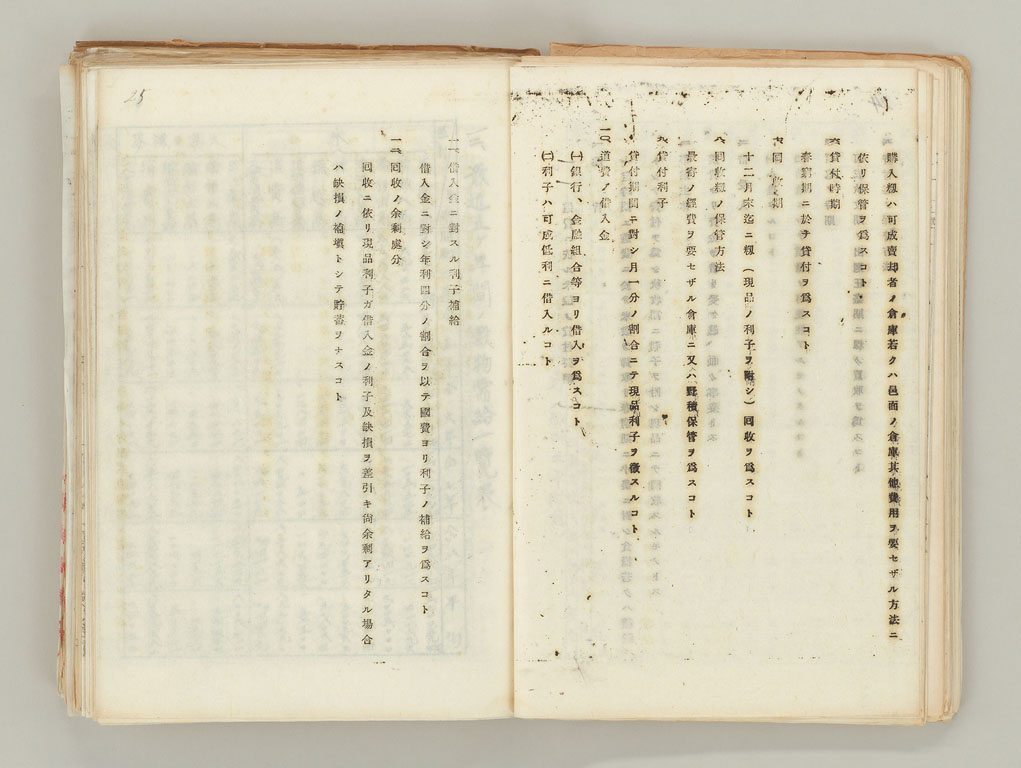 購入糎ハ可成賣却者ノ倉庫若クハ邑面ノ倉庫其他費用ヲ要セザル方法ニ
依リ保管ヲ爲スコト
六、貸付時期
春窮期ニ於テ貸付ヲ爲スコト
七、回收期
十二月末迄ニ糎(現品ノ利子ヲ附シ)回收ヲ爲スコト
八、回收糎ノ保管方法
最寄ノ經費ヲ要セザル倉庫ニ又ハ野積保管ヲ爲スコト
九、貸付利子
貸付期間ニ對シ月一分ノ割合ニテ現品利子ヲ徴スルコト
一〇、道費ノ借入金
(一)銀行、金融組合等ヨリ借入ヲ爲スコト
(二)利子ハ可成低利ニ借入ルコト
25
一一、借入金ニ對スル利子補給
借入金ニ對シ年利四分ノ割合ヲ以テ國費ヨリ利子ノ補給ヲ爲スコト
一二、回收ノ余剰處分
回收ニ依リ現品利子ガ借入金ノ利子及缺損ヲ差引キ尙余剰アリタル場合
ハ缺損ノ補塡トシテ貯蓄ヲナスコト